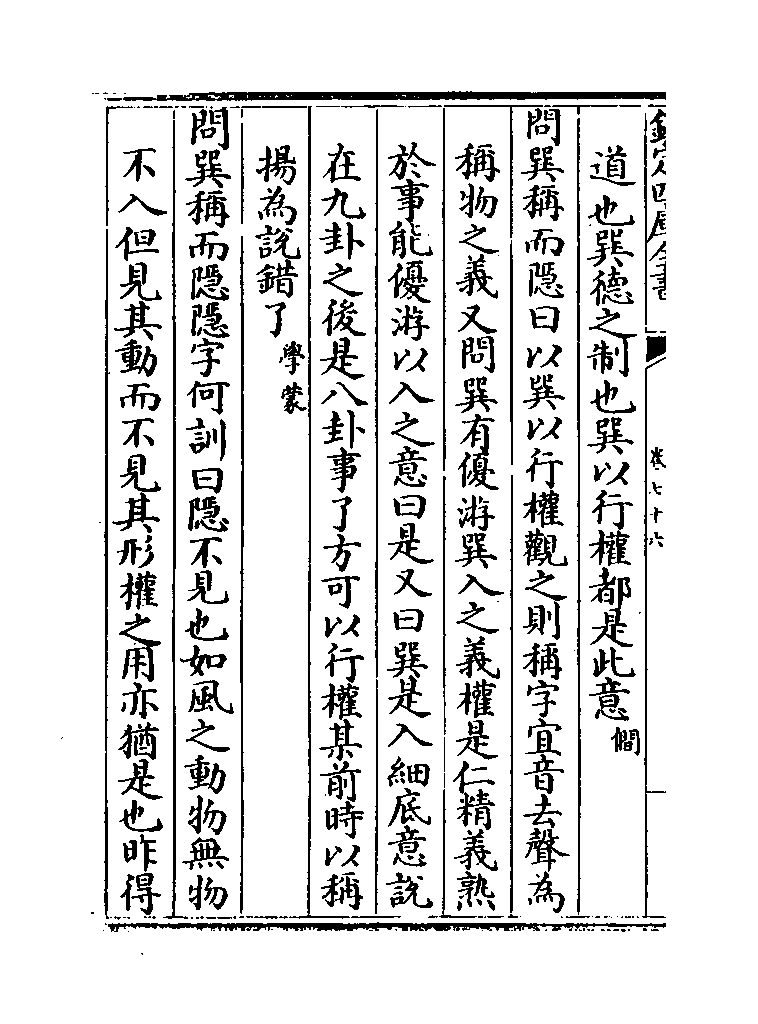 欽定四庫全書
卷七十六
道也巽德之制也巽以行權都是此意僩
問巽稱而隱曰以巽以行權觀之則稱字宜音去聲為
稱物之義又問巽有優游巽入之義權是仁精義熟
於事能優游以入之意曰是又曰巽是入細底意說
在九卦之後是八卦事了方可以行權某前時以稱
揚為說錯了學蒙
問巽稱而隱隱字何訓曰隱不見也如風之動物無物
不入但見其動而不見其形權之用亦猶是也昨得